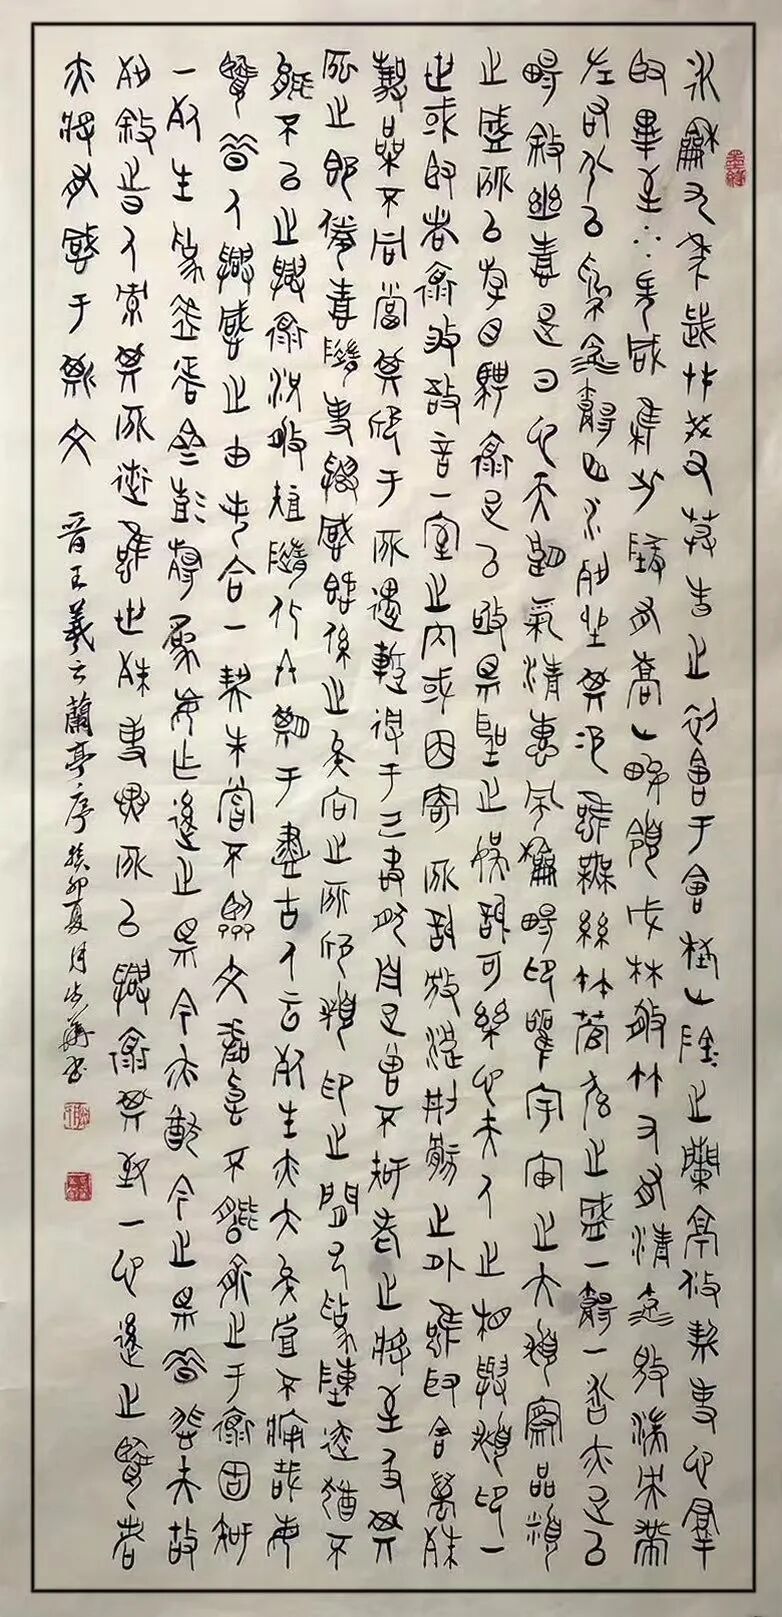 永和九年歲在癸丑暮春之初會于會稽山陰之蘭亭修禊事也群
賢畢至少長咸集此地有崇山峻領茂林修竹又有清流激湍映帶
左右引以為流觴曲水列坐其次雖無絲竹管弦之盛一觴一詠亦足以
暢敘幽情是日也天朗氣清惠風和暢仰觀宇宙之大俯察品類
之盛所以遊目騁懷足以極視聽之娛信可樂也夫人之相與俯仰一
世或取諸懷抱悟言一室之內或因寄所託放浪形骸之外雖取舍萬殊
靜躁不同當其欣于所遇暫得于己快然自足曾不知老之將至及其
所之既倦情隨事遷感慨係之矣向之所欣俯仰之間以為陳迹猶不
能不以之興懷況修短隨化終期于盡古人云死生亦大矣豈不痛哉每
覽昔人興感之由若合一契未嘗不臨文嗟悼不能喻之于懷固知
一死生為虛誕齊彭殤為妄作後之視今亦猶今之視昔悲夫故
列敘時人錄其所述雖世殊事異所以興懷其致一也後之覽者
亦將有感于斯文 晉王羲之蘭亭序 癸卯夏月 華書